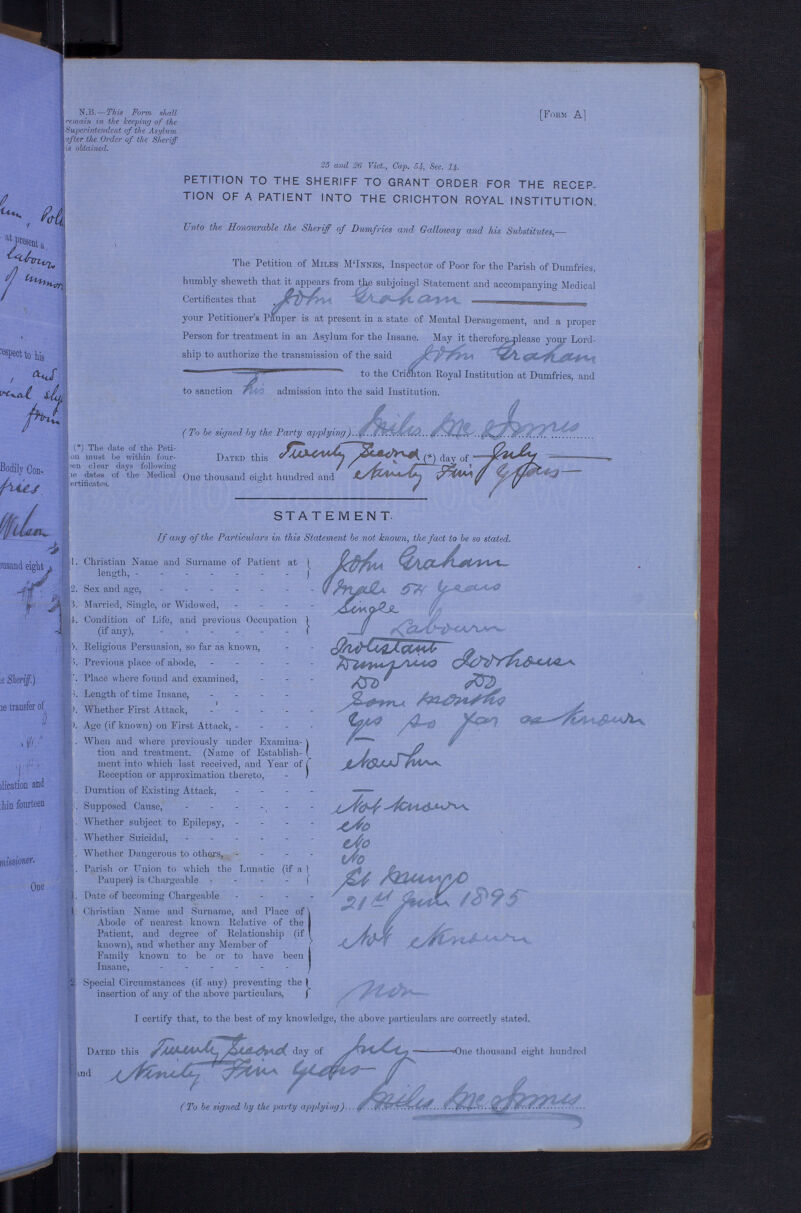 um, Pol
at present a
labour
of
respect to his
and
from
Bodily Con-
fries
Wilson
ousand eight
Sheriff.)
he transfer of
plication and
thin fourteen
missioner.
One
N.B.—This Form shall
remain in the keeping of the
Superintendent of the Asylum
after the Order of the Sheriff
is obtained.
[FORM A]
25 and 26 Vict., Cap. 54, Sec. 14.
PETITION TO THE SHERIFF TO GRANT ORDER FOR THE RECEP-
TION OF A PATIENT INTO THE CRICHTON ROYAL INSTITUTION.
Unto the Honourable the Sheriff of Dumfries and Galloway and his Substitutes,—
The Petition of MILES M'INNES, Inspector of Poor for the Parish of Dumfries,
humbly sheweth that it appears from the subjoined Statement and accompanying Medical
Certificates that John Graham
your Petitioner's Pauper is at present in a state of Mental Derangement, and a proper
Person for treatment in an Asylum for the Insane. May it therefore please your Lord-
ship to authorize the transmission of the said John Graham
to the Crichton Royal Institution at Dumfries, and
to sanction his admission into the said Institution.
(To be signed by the Party applying) Miles McInnes
(*) The date of the Peti-
on must be within four-
een clear days following
he dates of the Medical
ertificates.
DATED this Twenty Second (*) day of July
One thousand eight hundred and Ninety Five Years
STATEMENT.
If any of the Particulars in this Statement be not known, the fact to be so stated.
1. Christian Name and Surname of Patient at length, - John Graham
2. Sex and age, - Male 54 years
3. Married, Single, or Widowed, - Single
4. Condition of Life, and previous Occupation (if any), - Labourer
5. Religious Persuasion, so far as known, - Protestant
6. Previous place of abode, - Dumfries Poorhouse
7. Place where found and examined, - Do Do
8. Length of time Insane, - Some months
9. Whether First Attack, - Yes so far as known
0. Age (if known) on First Attack, - —
. When and where previously under Examina-
tion and treatment. (Name of Establish-
ment into which last received, and Year of
Reception or approximation thereto, - Nowhere
. Duration of Existing Attack, -
. Supposed Cause, - Not known
. Whether subject to Epilepsy, - No
. Whether Suicidal, - No
. Whether Dangerous to others, - No
. Parish or Union to which the Lunatic (if a
Pauper) is Chargeable - St Mungo
. Date of becoming Chargeable 21st June 1895
. Christian Name and Surname, and Place of
Abode of nearest known Relative of the
Patient, and degree of Relationship (if
known), and whether any Member of
Family known to be or to have been
Insane, - Not Known
2 Special Circumstances (if any) preventing the
insertion of any of the above particulars, Non
I certify that, to the best of my knowledge, the above particulars are correctly stated.
DATED this Twenty Second day of July One thousand eight hundred
and Ninety Five Years
(To be signed by the party applying) Miles McInnes